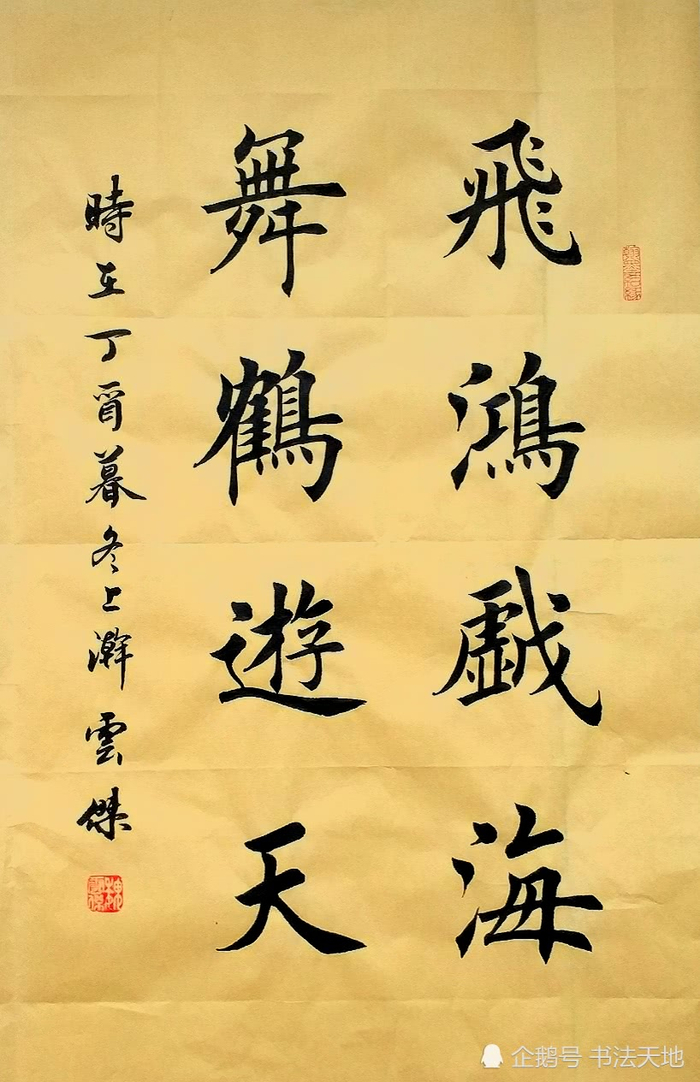 飛鴻戯海
舞鶴遊天
時在丁酉暮冬上澣雲傑
企鹅号 书法天地